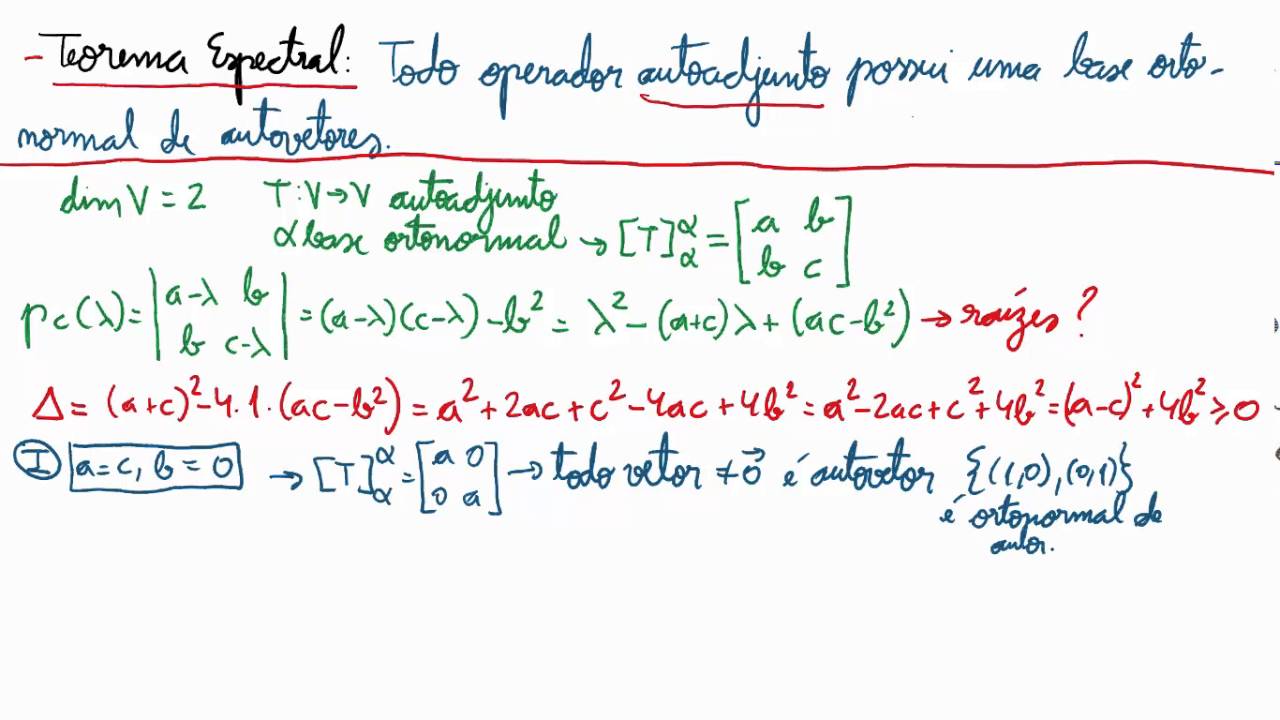 - Teorema Espectral: Todo operador autoadjunto possui uma base orto-
normal de autovetores.
dim V = 2 T: V → V autoadjunto
α base ortonormal → [T]^α_α = [a b; b c]
pc(λ) = |a-λ b; b c-λ| = (a-λ)(c-λ) - b² = λ² - (a+c)λ + (ac-b²) → raízes?
Δ = (a+c)² - 4.1.(ac-b²) = a² + 2ac + c² - 4ac + 4b² = a² - 2ac + c² + 4b² = (a-c)² + 4b² ≥ 0
I a=c, b=0 → [T]^α_α = [a 0; 0 a] → todo vetor ≠ 0⃗ é autovetor {(1,0),(0,1)}
é ortonormal de
autov.